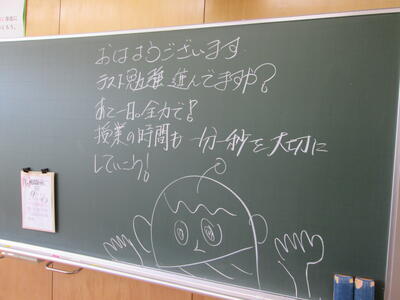 おはようございます
テスト勉強進んでますか?
あと一日。全力で!
授業の時間も一分一秒を大切に
していこう!